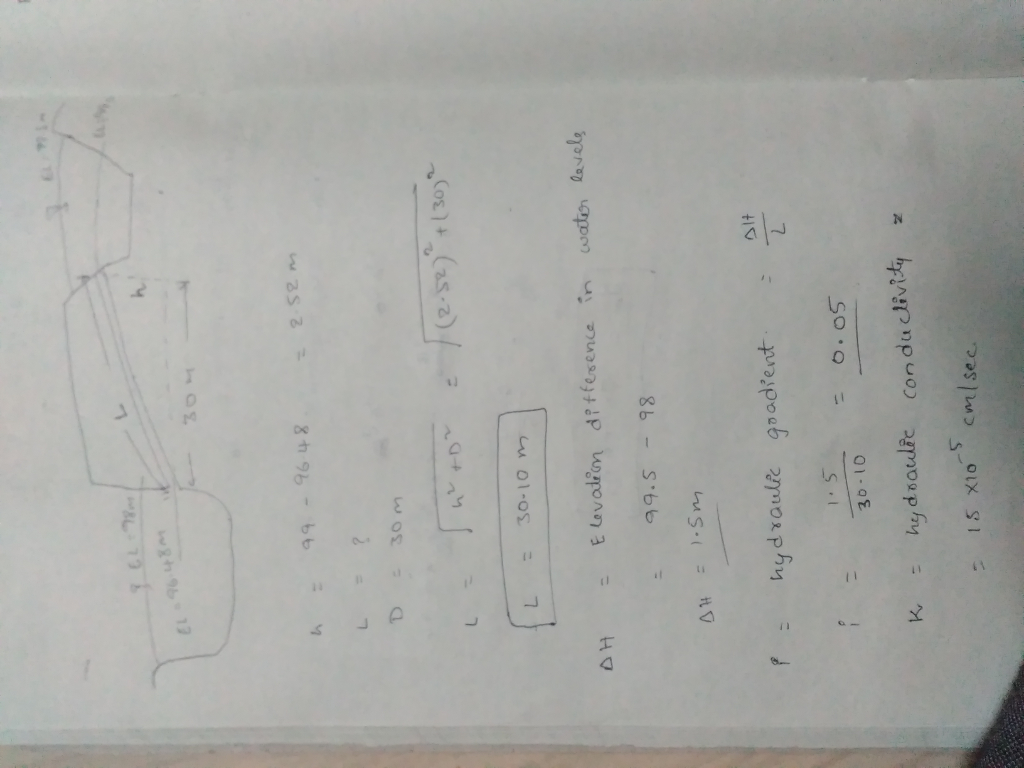 EL=98m
EL=96.48M
L
h
30M
h = 99 - 96.48 = 2.52 m
L = ?
D = 30m
L = √h² + D² = √(2.52)² + (30)²
L = 30.10 m
ΔH = Elevation difference in water levels
= 99.5 - 98
ΔH = 1.5m
i = hydraulic gradient = ΔH/L
i = 1.5/30.10 = 0.05
K = hydraulic conductivity =
= 15 x10⁻⁵ cm/sec